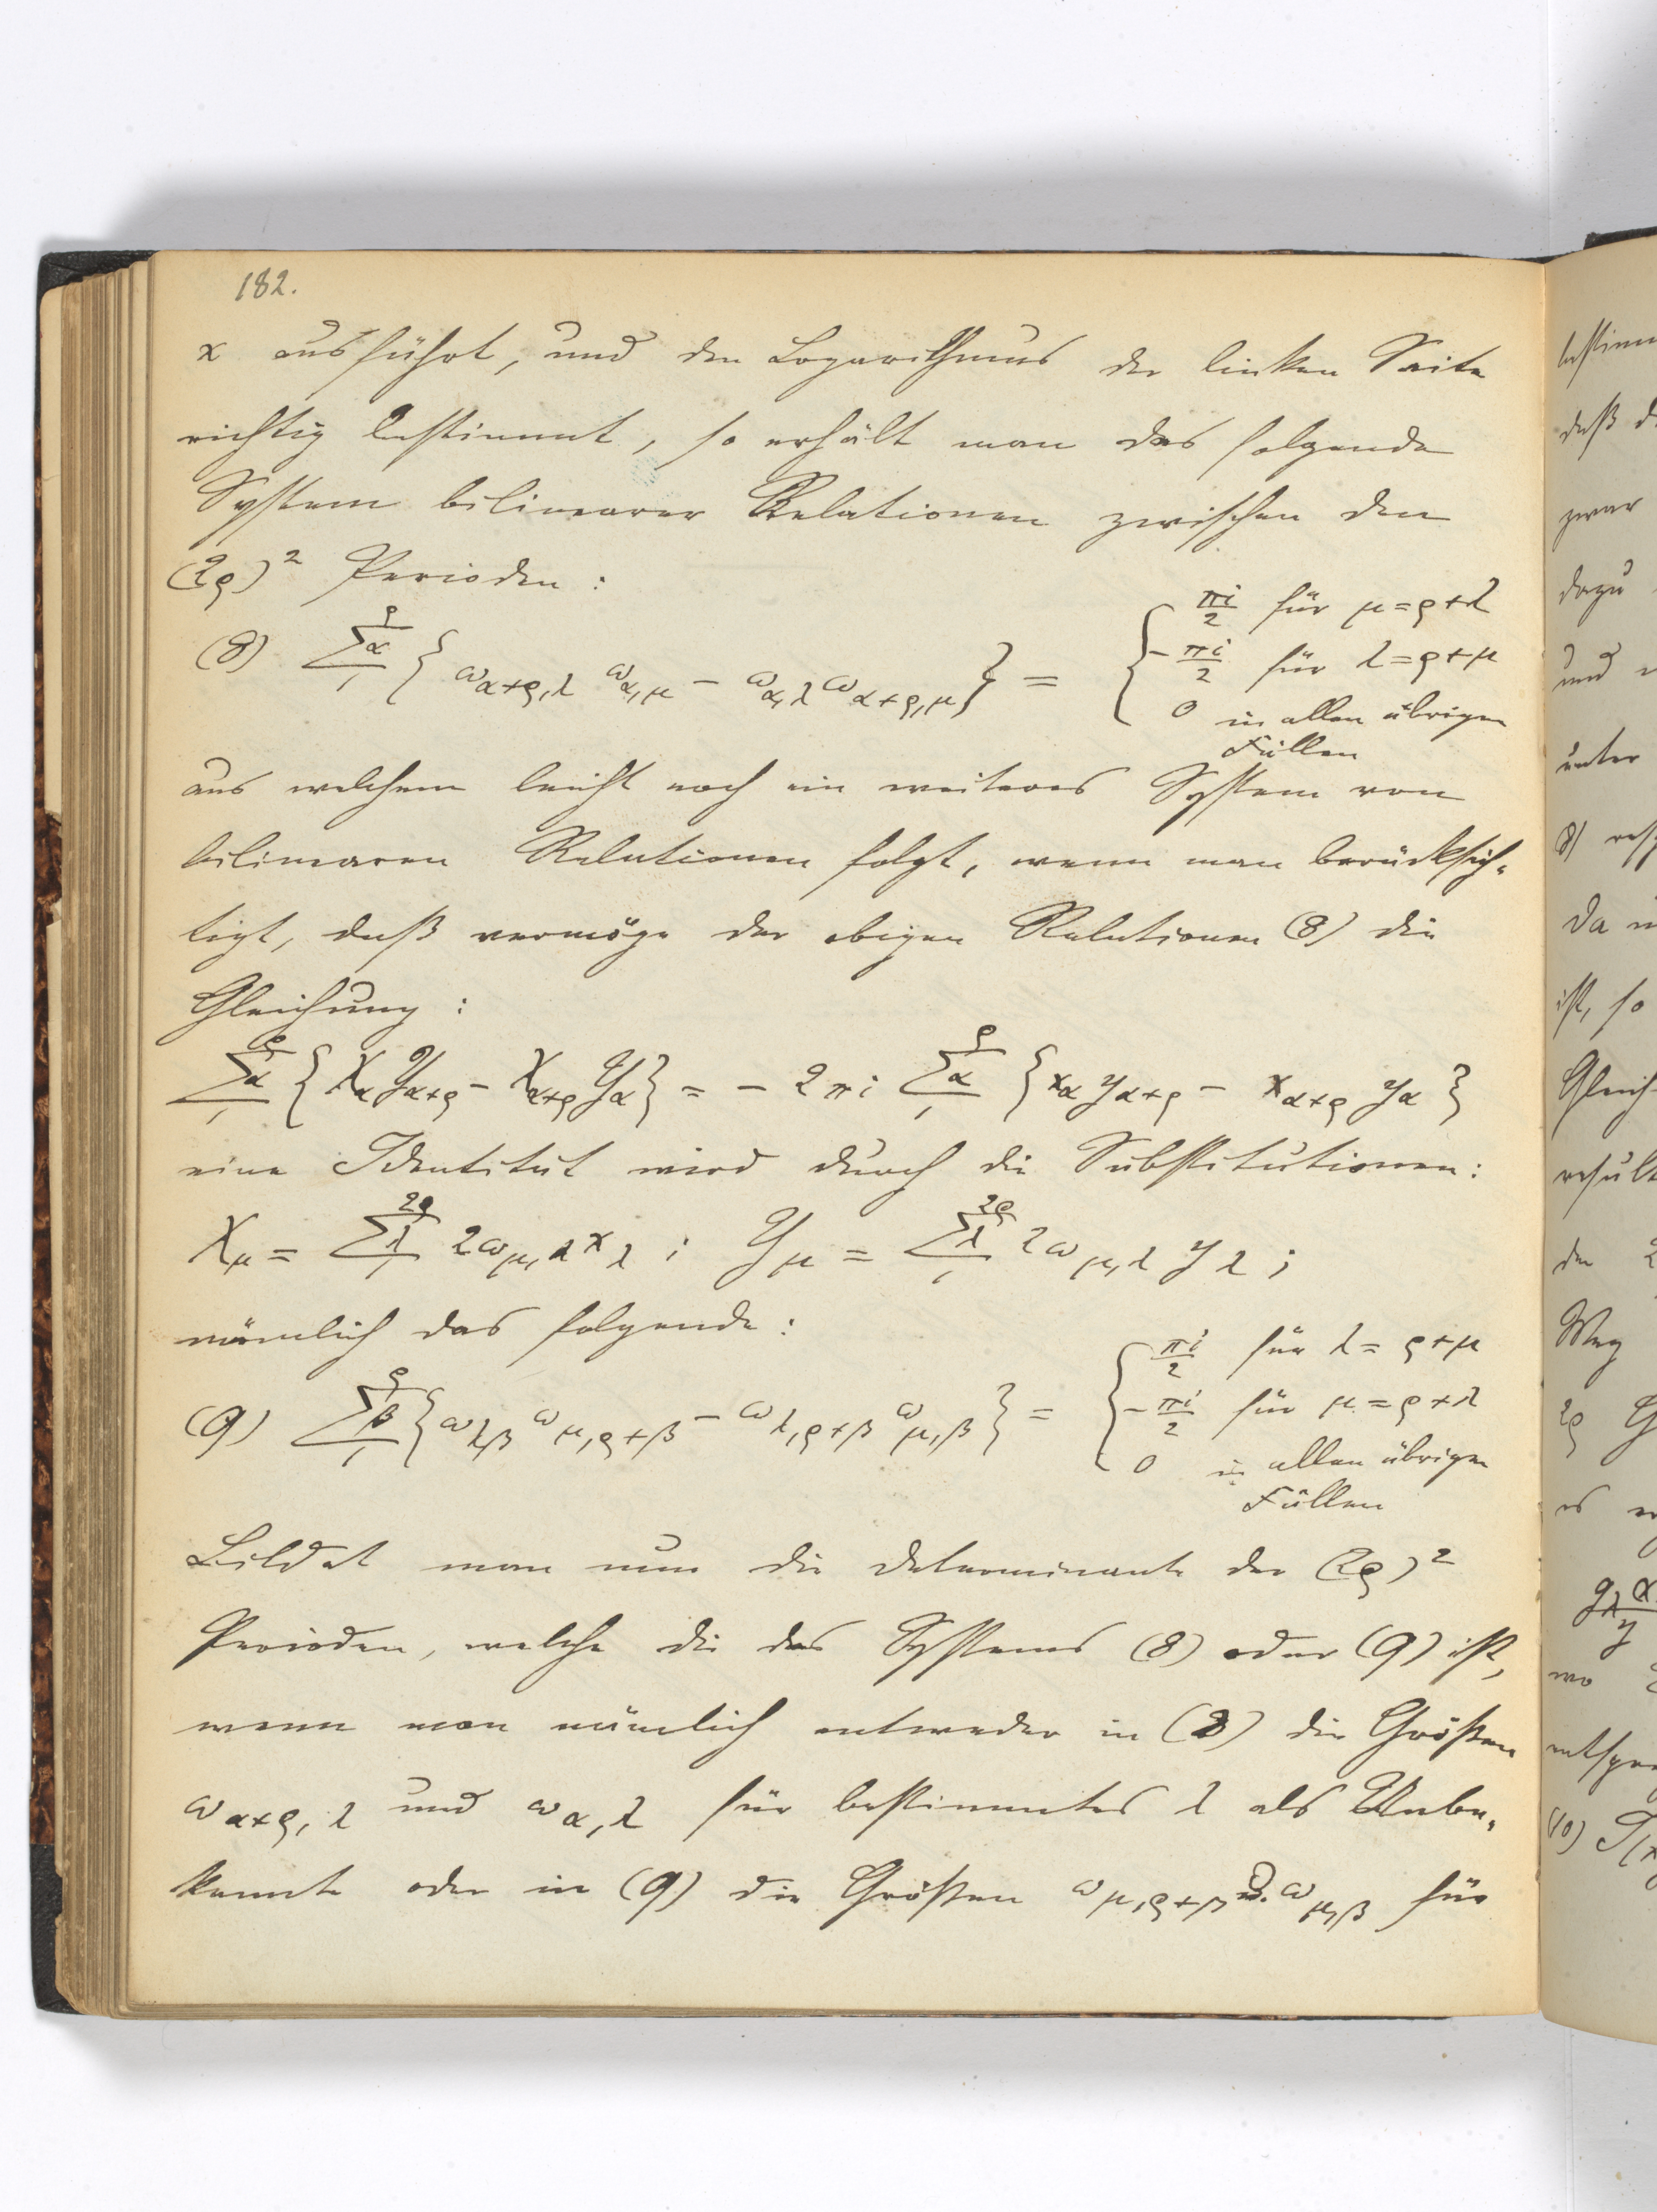 182.
x ausführt, und den Logarithmus der linken Seite
richtig bestimmt, so erhält man das folgende
System bilinearer Relationen zwischen den
(2ρ)² Perioden:
(8) $\sum_{1}^{\rho}{}_{\alpha} \{ \omega_{\alpha+\rho,\lambda} \omega_{\alpha,\mu} - \omega_{\alpha,\lambda} \omega_{\alpha+\rho,\mu} \} =$ { $\frac{\pi i}{2}$ für μ = ρ+λ
$-\frac{\pi i}{2}$ für λ = ρ+μ
0 in allen übrigen
Fällen
aus welchem leicht noch ein weiteres System von
bilinearen Relationen folgt, wenn man berücksich-
tigt, daß vermöge der obigen Relationen (8) die
Gleichung:
$\sum_{1}^{\rho}{}_{\alpha} \{ X_{\alpha} Y_{\alpha+\rho} - X_{\alpha+\rho} Y_{\alpha} \} = -2\pi i \sum_{1}^{\rho}{}_{\alpha} \{ x_{\alpha} y_{\alpha+\rho} - x_{\alpha+\rho} y_{\alpha} \}$
eine Identität wird durch die Substitutionen:
$X_{\mu} = \sum_{1}^{2\rho}{}_{\lambda} 2\omega_{\mu,\lambda} x_{\lambda}$ ; $Y_{\mu} = \sum_{1}^{2\rho}{}_{\lambda} 2\omega_{\mu,\lambda} y_{\lambda}$ ;
nämlich das folgende:
(9) $\sum_{1}^{\rho}{}_{\beta} \{ \omega_{\lambda,\beta} \omega_{\mu,\rho+\beta} - \omega_{\lambda,\rho+\beta} \omega_{\mu,\beta} \} =$ { $\frac{\pi i}{2}$ für λ = ρ+μ
$-\frac{\pi i}{2}$ für μ = ρ+λ
0 in allen übrigen
Fällen
Bildet man nun die Determinante der (2ρ)²
Perioden, welche die des Systems (8) oder (9) ist,
wenn man nämlich entweder in (8) die Größen
$\omega_{\alpha+\rho,\lambda}$ und $\omega_{\alpha,\lambda}$ für bestimmtes λ als Unbe-
kannte oder in (9) die Größen $\omega_{\mu,\rho+\beta}$ u. $\omega_{\mu,\beta}$ für
daß
zwar
dazu
und
unter
Da
ist, so
Gleich-
den
Weg
2ρ
es
wo
(10)